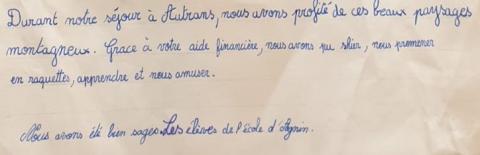 Durant notre séjour à Autrans, nous avons profité de ces beaux paysages
montagneux. Grace à votre aide financière, nous avons pu skier, nous promener
en raquettes, apprendre et nous amuser.
Nous avons été bien sages. Les élèves de l'école d'Agnin.